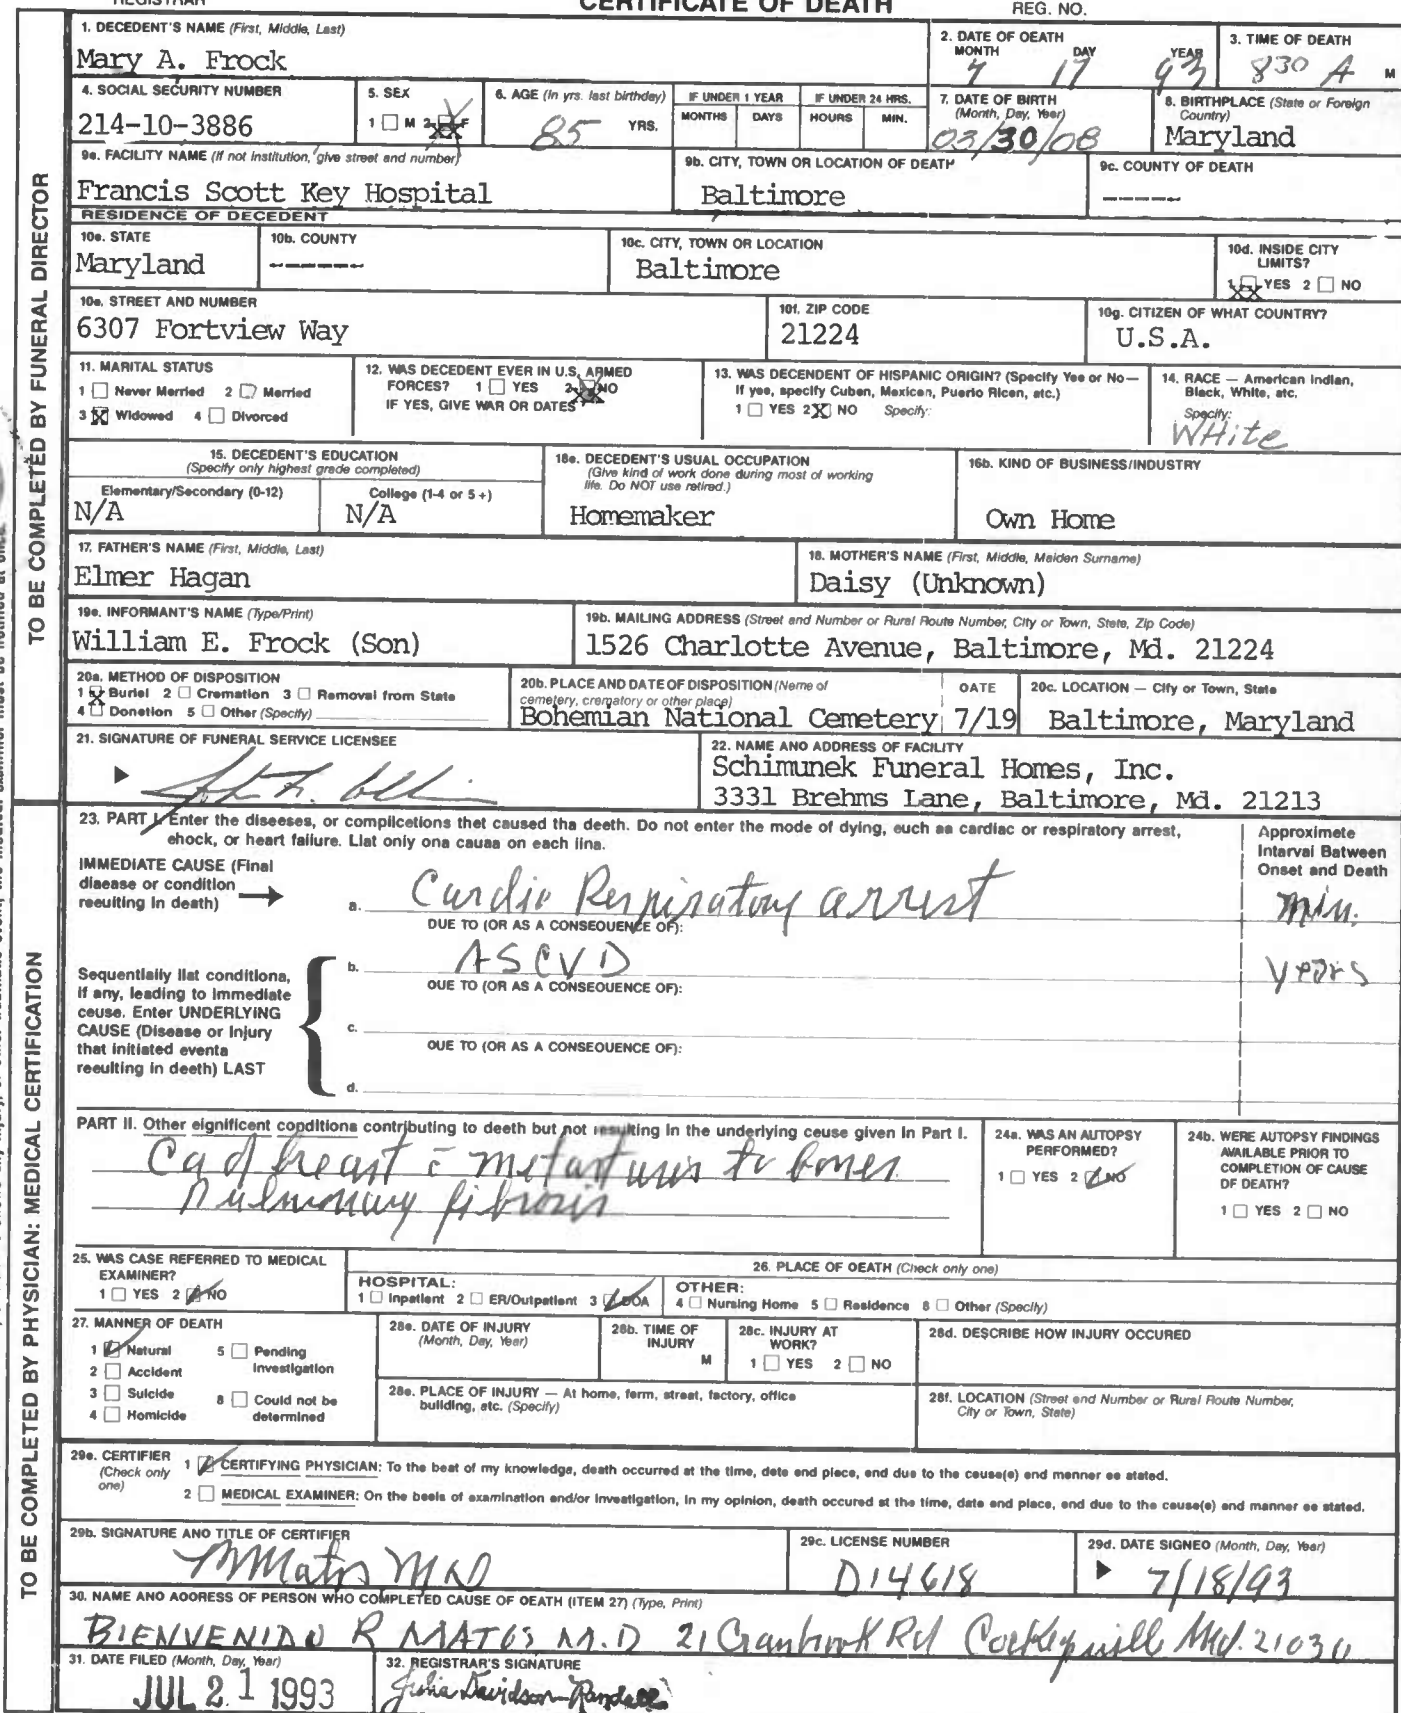 REGISTRAR CERTIFICATE OF DEATH REG. NO.
TO BE COMPLETED BY FUNERAL DIRECTOR
1. DECEDENT'S NAME (First, Middle, Last)
Mary A. Frock
2. DATE OF DEATH
MONTH DAY YEAR
7 17 93
3. TIME OF DEATH
830 A M
4. SOCIAL SECURITY NUMBER
214-10-3886
5. SEX
1 M 2 F
6. AGE (In yrs. last birthday)
85 YRS.
IF UNDER 1 YEAR
MONTHS DAYS
IF UNDER 24 HRS.
HOURS MIN.
7. DATE OF BIRTH
(Month, Day, Year)
03/30/08
8. BIRTHPLACE (State or Foreign
Country)
Maryland
9a. FACILITY NAME (If not institution, give street and number)
Francis Scott Key Hospital
9b. CITY, TOWN OR LOCATION OF DEATH
Baltimore
9c. COUNTY OF DEATH
-----
RESIDENCE OF DECEDENT
10a. STATE
Maryland
10b. COUNTY
------
10c. CITY, TOWN OR LOCATION
Baltimore
10d. INSIDE CITY
LIMITS?
1 XX YES 2 NO
10e. STREET AND NUMBER
6307 Fortview Way
10f. ZIP CODE
21224
10g. CITIZEN OF WHAT COUNTRY?
U.S.A.
11. MARITAL STATUS
1 Never Married 2 Married
3 X Widowed 4 Divorced
12. WAS DECEDENT EVER IN U.S. ARMED
FORCES? 1 YES 2 XX NO
IF YES, GIVE WAR OR DATES
13. WAS DECENDENT OF HISPANIC ORIGIN? (Specify Yes or No—
If yes, specify Cuban, Mexican, Puerto Rican, etc.)
1 YES 2 X NO Specify:
14. RACE — American Indian,
Black, White, etc.
Specify:
White
15. DECEDENT'S EDUCATION
(Specify only highest grade completed)
Elementary/Secondary (0-12)
N/A
College (1-4 or 5+)
N/A
16a. DECEDENT'S USUAL OCCUPATION
(Give kind of work done during most of working
life. Do NOT use retired.)
Homemaker
16b. KIND OF BUSINESS/INDUSTRY
Own Home
17. FATHER'S NAME (First, Middle, Last)
Elmer Hagan
18. MOTHER'S NAME (First, Middle, Maiden Surname)
Daisy (Unknown)
19a. INFORMANT'S NAME (Type/Print)
William E. Frock (Son)
19b. MAILING ADDRESS (Street and Number or Rural Route Number, City or Town, State, Zip Code)
1526 Charlotte Avenue, Baltimore, Md. 21224
20a. METHOD OF DISPOSITION
1 X Burial 2 Cremation 3 Removal from State
4 Donation 5 Other (Specify)
20b. PLACE AND DATE OF DISPOSITION (Name of
cemetery, crematory or other place)
Bohemian National Cemetery
DATE
7/19
20c. LOCATION — City or Town, State
Baltimore, Maryland
21. SIGNATURE OF FUNERAL SERVICE LICENSEE
22. NAME AND ADDRESS OF FACILITY
Schimunek Funeral Homes, Inc.
3331 Brehms Lane, Baltimore, Md. 21213
TO BE COMPLETED BY PHYSICIAN: MEDICAL CERTIFICATION
23. PART I. Enter the diseases, or complications that caused the death. Do not enter the mode of dying, such as cardiac or respiratory arrest,
shock, or heart failure. List only one cause on each line.
Approximate
Interval Between
Onset and Death
IMMEDIATE CAUSE (Final
disease or condition
resulting in death)
a. Cardio Respiratory arrest min.
DUE TO (OR AS A CONSEQUENCE OF):
b. ASCVD years
DUE TO (OR AS A CONSEQUENCE OF):
c.
DUE TO (OR AS A CONSEQUENCE OF):
d.
Sequentially list conditions,
if any, leading to immediate
cause. Enter UNDERLYING
CAUSE (Disease or injury
that initiated events
resulting in death) LAST
PART II. Other significant conditions contributing to death but not resulting in the underlying cause given in Part I.
Ca of breast c̄ metastasis to bones
Pulmonary fibrosis
24a. WAS AN AUTOPSY
PERFORMED?
1 YES 2 NO
24b. WERE AUTOPSY FINDINGS
AVAILABLE PRIOR TO
COMPLETION OF CAUSE
OF DEATH?
1 YES 2 NO
25. WAS CASE REFERRED TO MEDICAL
EXAMINER?
1 YES 2 NO
26. PLACE OF DEATH (Check only one)
HOSPITAL:
1 Inpatient 2 ER/Outpatient 3 DOA
OTHER:
4 Nursing Home 5 Residence 6 Other (Specify)
27. MANNER OF DEATH
1 Natural 5 Pending
2 Accident Investigation
3 Suicide 6 Could not be
4 Homicide determined
28a. DATE OF INJURY
(Month, Day, Year)
28b. TIME OF
INJURY
M
28c. INJURY AT
WORK?
1 YES 2 NO
28d. DESCRIBE HOW INJURY OCCURED
28e. PLACE OF INJURY — At home, farm, street, factory, office
building, etc. (Specify)
28f. LOCATION (Street and Number or Rural Route Number,
City or Town, State)
29a. CERTIFIER
(Check only
one)
1 CERTIFYING PHYSICIAN: To the best of my knowledge, death occurred at the time, date and place, and due to the cause(s) and manner as stated.
2 MEDICAL EXAMINER: On the basis of examination and/or investigation, in my opinion, death occured at the time, date and place, and due to the cause(s) and manner as stated.
29b. SIGNATURE AND TITLE OF CERTIFIER
Matos MD
29c. LICENSE NUMBER
D14618
29d. DATE SIGNED (Month, Day, Year)
7/18/93
30. NAME AND ADDRESS OF PERSON WHO COMPLETED CAUSE OF DEATH (ITEM 27) (Type, Print)
BIENVENIDO R MATOS M.D 21 Cranbrook Rd Cockeysville Md. 21030
31. DATE FILED (Month, Day, Year)
JUL 21 1993
32. REGISTRAR'S SIGNATURE
Julia Davidson-Randall